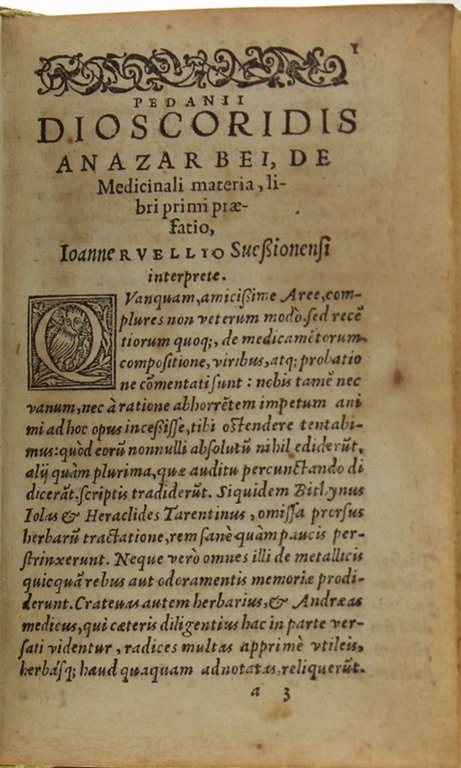 1
PEDANII
DIOSCORIDIS
ANAZARBEI, DE
Medicinali materia, li-
bri primi præ-
fatio,
Ioanne RVELLIO Sueßionensi
interprete.
QVanquam, amicißime Aree, com-
plures non veterum modo, sed recẽ
tiorum quoq;, de medicamẽtorum
compositione, viribus, atq; probatio
ne cõmentati sunt: nobis tamẽ nec
vanum, nec à ratione abhorrẽtem impetum ani
mi ad hoc opus incesisse, tibi ostendere tentabi-
mus: quòd eorũ nonnulli absolutũ nihil ediderũt,
alij quàm plurima, quæ auditu percunctando di
dicerãt, scriptis tradiderũt. Siquidem Bithynus
Iolas & Heraclides Tarentinus, omissa prorsus
herbarũ tractatione, rem sanè quàm paucis per-
strinxerunt. Neque verò omnes illi de metallicis
quicquã rebus aut odoramentis memoriæ prodi-
derunt. Crateuas autem herbarius, & Andræas
medicus, qui cæteris diligentius hac in parte ver-
sati videntur, radices multas apprimè vtileis,
herbásq; haud quaquam adnotatas, reliquerũt.
a 3